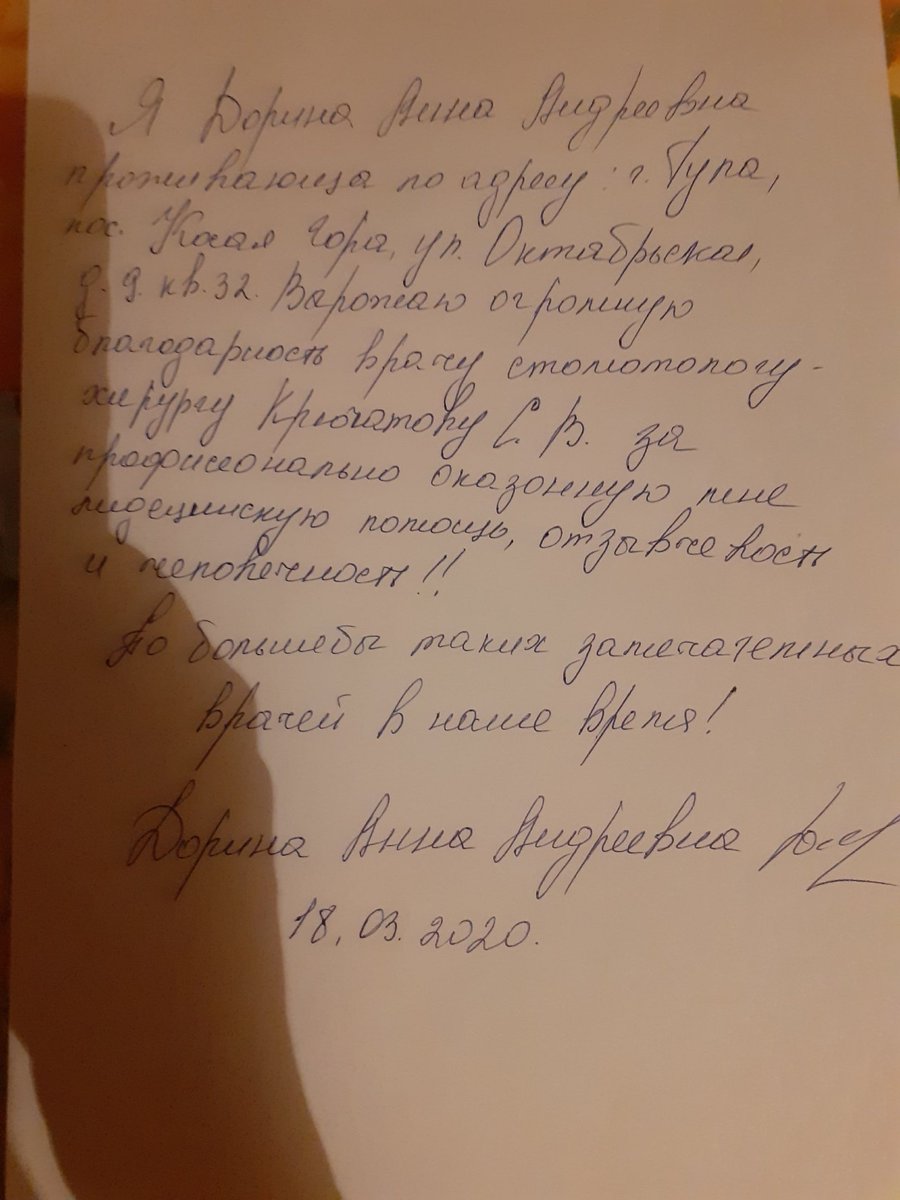 Я Дорина Анна Андреевна
проживающа по адресу: г. Тула,
пос. Косая Гора, ул. Октабрьская,
д. 9. кв. 32. Варожаю огромную
благодарность врачу стоматологу-
хирургу Крючатову С. В. за
профисионально оказонную мне
медецинскую помощь, отзывчевость
и человечность!!
По большебы таких замечательных
врачей в наше время!
Дорина Анна Андреевна
18.03.2020.